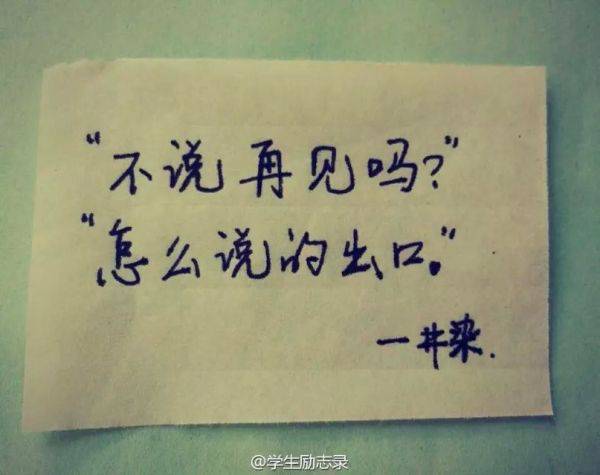 “不说再见吗？”
“怎么说的出口。”
一井染.
@学生励志录